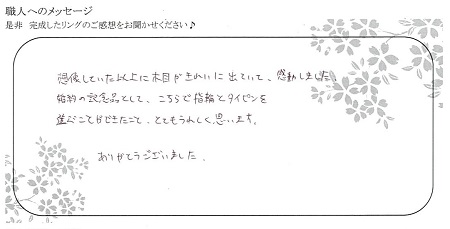 職人へのメッセージ
是非 完成したリングのご感想をお聞かせください♪
想像していた以上に木目がきれいに出ていて、感動しました。
婚約の記念品として、こちらで指輪とタイピンを
選ぶことができたこと、とてもうれしく思います。
ありがとうございました。